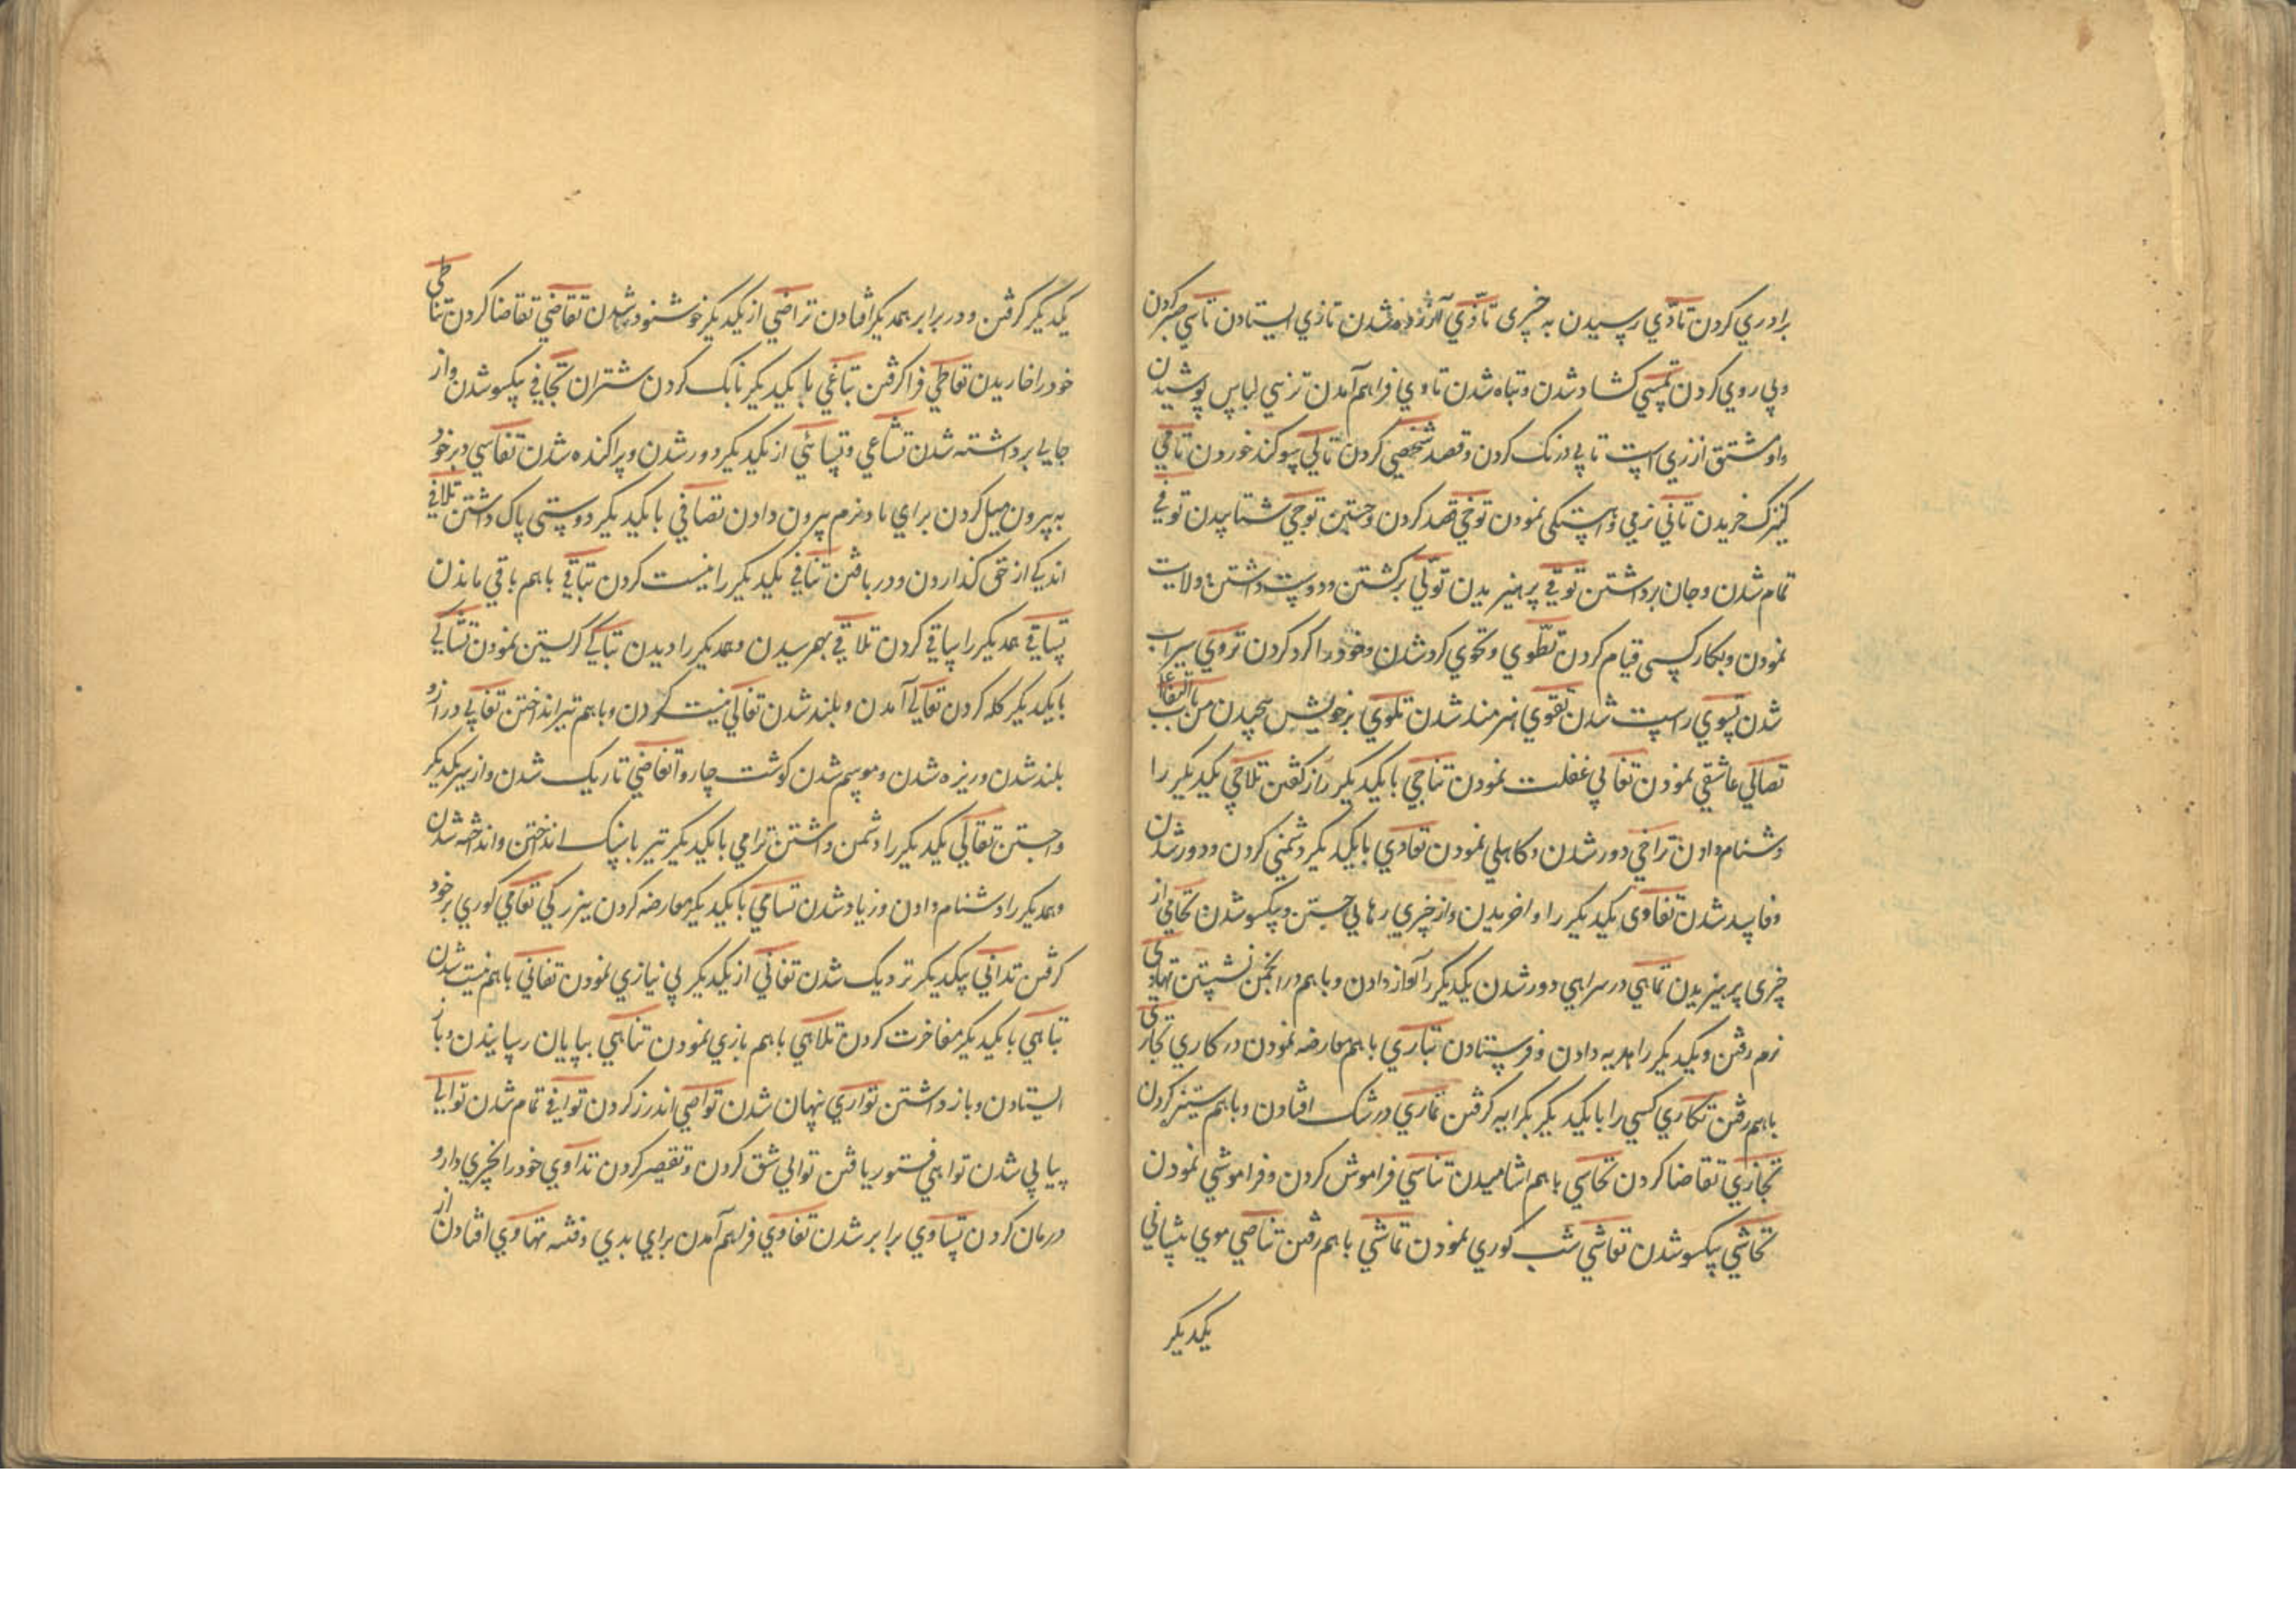 برادري کردن تادّي رسيدن به چيزى تاذّي آزرده شدن تازي ايستادن تاسّي صبر کردن
و پي روي کردن تمسّي کشاد شدن و تباه شدن تاوي فراهم آمدن تزيّي لباس پوشيدن
تاپي درنک کردن و قصد شخصي کردن تالّي سوکند خوردن تامّي
کنيزک خريدن تانّي نرمي و آهستکى نمودن توخّي قصد کردن و جستن توحّي شتابيدن توفّي
تمام شدن و جان برداشتن توقّي پرهيزيدن تولّي برکشتن و دوست داشتن و ولايت
نمودن و بکار کسى قيام کردن تطوّي و تحوّي کرد شدن و خود را کرد کردن تروّي سيراب
شدن تسوّي راست شدن تقوّي هنرمند شدن تلوّي بر خويش پيچيدن من باب التفاعل
تصابي عاشقي نمودن تغابي غفلت نمودن تناجي با يکديکر راز کفتن تلاحي يکديکر را
دشنام دادن تراخي دور شدن و کاهلي نمودن تعادي با يکديکر دشمني کردن و دور شدن
و فاسد شدن تفادى يکديکر را واخريدن و از چيزي رهايي جستن و يکسو شدن تحامي از
چيزى پرهيزيدن تماهي در سراهي دور شدن يکديکر را آواز دادن و باهم در انجمن نشستن تهادي
نرم رفتن و يکديکر را هديه دادن و فرستادن تباري باهم معارضه نمودن در کاري تجاري
باهم رفتن تکاري کسي را با يکديکر بکرايه کرفتن تماري در شک افتادن و باهم ستيز کردن
تجازي تقاضا کردن تحاسي باهم اشاميدن تناسي فراموش کردن و فراموشي نمودن
تحاشي يکسو شدن تعاشي شب کوري نمودن تماشي باهم رفتن تناصي موي پيشاني
يکديکر
يکديکر کرفتن و در برابر همديکر افتادن تراضي از يکديکر خوشنود شدن تقاضي تقاضا کردن تناطي
خود را خاريدن تعاطي فرا کرفتن تباغي با يکديکر کردن شتران تجافي يکسو شدن و از
جايي برداشته شدن تشاعي و تسائي از يکديکر دور شدن و پراکنده شدن تفاسي در خود
به بيرون ميل کردن براي باد و نرم بيرون دادن تصافي با يکديکر دوستى پاک داشتن تلافي
اندکي از حق کذاردن و دريافتن تنافي يکديکر را نيست کردن تباقي باهم باقي ماندن
تساقي همديکر را ساقي کردن تلاقي بهم رسيدن و همديکر را ديدن تباکي کريستن نمودن تشاکي
با يکديکر کله کردن تعالي آمدن و بلند شدن تغالي نيست کردن و باهم تير انداختن تفالي دراز و
بلند شدن و ريزه شدن و موسم شدن کوشت چاروا تغاضي تاريک شدن و از سر يکديکر
و جستن تقالي يکديکر را دشمن داشتن ترامي با يکديکر تير با سنک انداختن و انداخته شدن
و همديکر را دشنام دادن و زياد شدن تسامي با يکديکر معارضه کردن ببزرکي تعامي کوري بر خود
کرفتن تداني بيکديکر نزديک شدن تغاني از يکديکر بي نيازي نمودن تفاني باهم نيست شدن
تباهي با يکديکر مفاخرت کردن تلاهي باهم بازي نمودن تناهي بپايان رسانيدن و باز
ايستادن و باز داشتن تواري پنهان شدن تواصي اندرز کردن توافي تمام شدن توالي
پياپي شدن تواهي فتور يافتن تواني شق کردن و تقصير کردن تداوي خود را بچيزي دارو
درمان کردن تساوي برابر شدن تغاوي فراهم آمدن براي بدي و فتنه تهاوي افتادن از